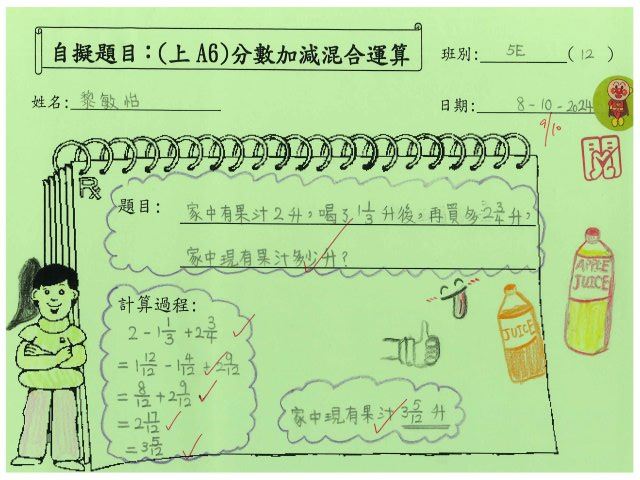 自擬題目：(上A6)分數加減混合運算
班別: 5E (12)
姓名: 黎敏怡
日期: 8-10-2024
9/10
閱
題目: 家中有果汁2升，喝了1 1/3升後，再買多2 3/4升，
家中現有果汁多少升？
計算過程:
2 - 1 1/3 + 2 3/4
= 1 12/12 - 1 4/12 + 2 9/12
= 8/12 + 2 9/12
= 2 17/12
= 3 5/12
家中現有果汁 3 5/12 升
APPLE
JUICE
JUICE